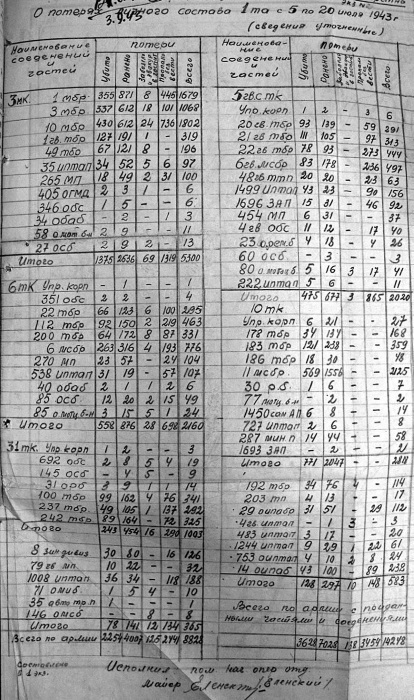 О потерях личного состава 1та с 5 по 20 июля 1943г
(сведения уточненные)
Наименование соединений и частей | потери
Убито | Ранено | Заболело | Пропало без вести | Всего
3мк 1 мбр 355 871 8 446 1679
3 мбр 337 612 18 101 1068
10 мбр 430 612 24 736 1802
1гв. тбр 127 191 1 - 319
49 тбр 67 121 8 - 196
35 иптап 34 52 5 6 97
265 МП 18 49 2 31 100
405 огмд 2 3 1 - 6
346 обс - 5 - - 6
34 обаб - 2 - 1 3
2 9 - - 11
27 осб 2 9 2 - 13
Итого 1375 2536 69 1319 5300
6тк Упр. корп - 1 - - 1
351 обс 2 2 - - 4
22 тбр 66 123 6 100 295
112 тбр 92 150 2 219 463
200 тбр 64 172 8 87 331
6 мсбр 263 316 4 193 776
270 мп 23 57 - 24 104
538 иптап 31 19 - 57 107
40 обаб 2 1 1 2 6
85 осб 12 20 2 15 49
3 15 5 1 24
Итого 558 876 28 698 2160
31тк. Упр корп 1 2 - - 3
692 обс 2 8 5 4 19
145 осб - 4 5 - 9
31 орб 3 9 1 1 14
100 тбр 99 162 4 76 341
237 тбр 49 105 1 137 292
242 тбр 89 164 - 72 325
Итого 243 454 16 290 1003
8 зен дивиз 30 80 - 16 126
79 гв мп 10 22 - - 32
1008 иптап 36 34 - 118 188
71 омиб - 5 4 - 10
1 - - - 1
146 омсб - - 8 - 8
Итого 78 141 12 134 365
Всего по армии 2254 4007 125 2441 8828
Наименование соединений и частей | Потери
Убито | Ранено | Всего
5гв.стк
Упр. корп 1 2 - 3 6
20 гв тбр 93 139 - 59 291
21 гв тбр 111 105 - 97 313
22 гв тбр 78 93 - 273 444
6гв. мсбр 83 178 - 236 497
48гв тпп 20 20 - 23 63
1499 иптап 43 23 - 90 156
1696 ЗАП 15 31 - 46 92
454 МП 6 31 - - 37
4 гв обс 11 12 - 17 40
4 18 - 4 26
60 осб - 3 - - 3
5 16 3 17 41
222 иптап 5 6 - - 11
Итого 475 677 3 865 2020
10 тк
Упр. корп 6 21 - - 27
178 тбр 34 134 - - 168
183 тбр 121 238 - - 359
186 тбр 18 30 - - 48
11 мсбр. 569 1556 - - 2125
30 р.б. 1 6 - - 7
- 2 - - 2
1450 сап 6 8 - - 14
727 иптап 2 6 - - 8
287 мин п 14 44 - - 58
1693 ЗАП - 2 - - 2
Итого 771 2047 - - 2818
192 тбр 34 76 4 - 114
203 тп 4 13 - - 17
29 оиптбр 31 51 - 29 112
4гв иптап - 1 3 - 3
483 иптап 3 17 - - 20
1244 иптап 9 29 1 22 61
753 оиптап 4 10 2 8 24
14 оиптаб 43 100 - 89 238
Итого 128 297 10 148 583
Всего по армии с приданными частями и соединениями
3628 7028 138 3454 14248
Исполнил пом. нач опер отд
майор Еленский